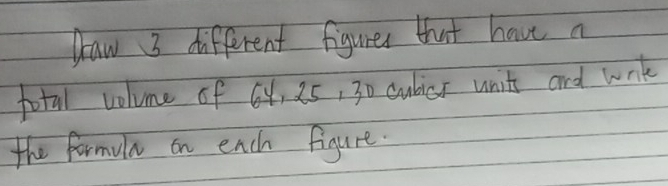 Draw 3 different figures that have a
total volume of 64, 25, 30 cubics units and write
the formula on each figure.